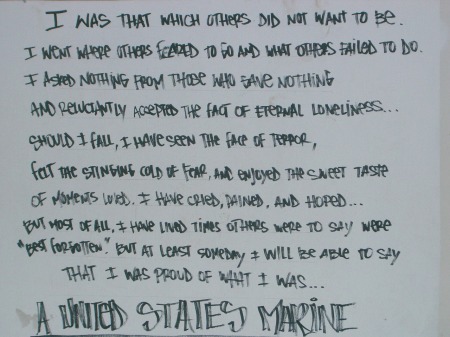 I WAS THAT WHICH OTHERS DID NOT WANT TO BE.
I WENT WHERE OTHERS FEARED TO GO AND WHAT OTHERS FAILED TO DO.
I ASKED NOTHING FROM THOSE WHO GAVE NOTHING
AND RELUCTANTLY ACCEPTED THE FACT OF ETERNAL LONELINESS...
SHOULD I FALL, I HAVE SEEN THE FACE OF TERROR,
FELT THE STINGING COLD OF FEAR, AND ENJOYED THE SWEET TASTE
OF MOMENTS LOVED. I HAVE CRIED, PAINED, AND HOPED...
BUT MOST OF ALL, I HAVE LIVED TIMES OTHERS WERE TO SAY WERE
"BEST FORGOTTEN." BUT AT LEAST SOMEDAY I WILL BE ABLE TO SAY
THAT I WAS PROUD OF WHAT I WAS...
A UNITED STATES MARINE